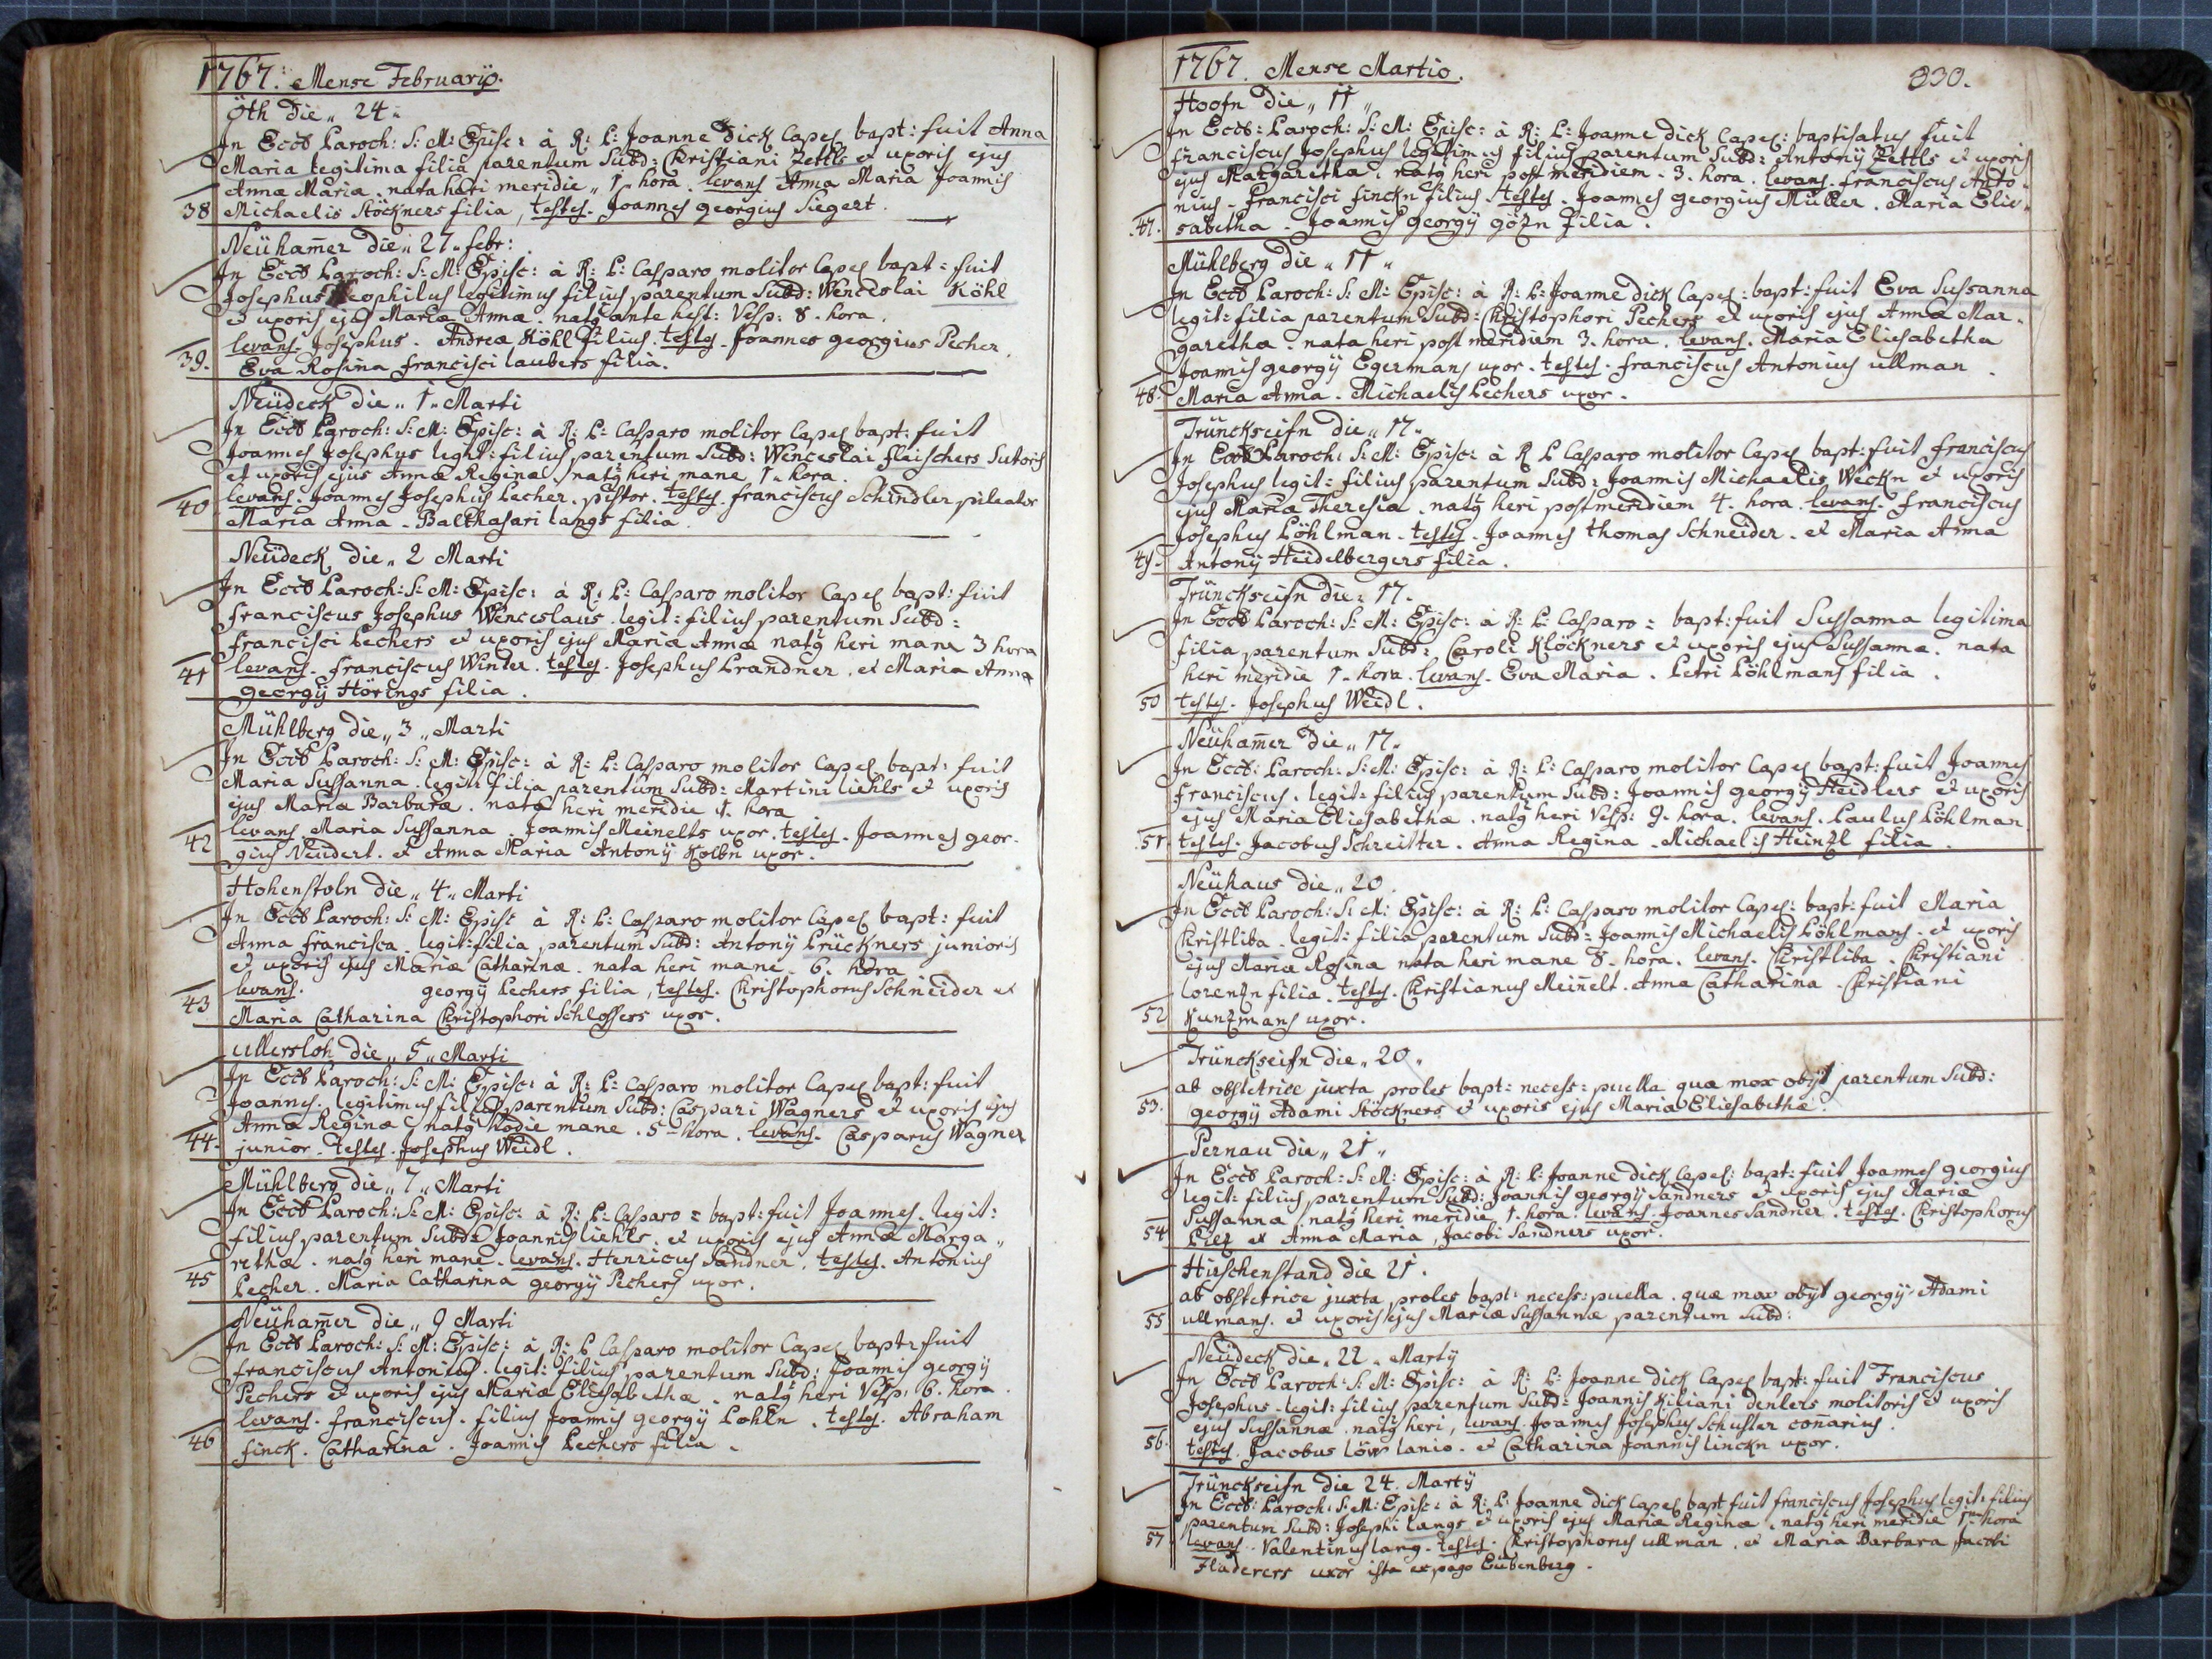 1767. Mense Februarÿ.
Öth die „ 24 „
In Eccl: Paroch: S: M: Episc: à R: P: Joanne Dick Capel bapt: fuit Anna
Maria legitima filia parentum Subd: Christiani Zettls et uxoris ejus
Annæ Mariæ. nata heri meridie „ 1 „ hora. levans Anna Maria Joannis
38 Michaelis Stöckners filia, testes. Joannes georgius Siegert.
Neüham̄er die „ 27 „ febr:
In Eccl Paroch: S: M: Episc: à R: P: Casparo molitor Capel bapt: fuit
Josephus Theophilus legitimus filius parentum Subd: Wenceslai Köhl
et uxoris ejus Mariæ Annæ. natq ante hest: Vesp: 8. hora.
levans. Josephus. Andreæ Köhl filius. testes. Joannes georgius Pecher.
39. Eva Rosina francisci laubers filia.
Neüdeck die „ 1 „ Marti
In Eccl Paroch: S: M: Episc: à R: P: Casparo molitor Capel bapt: fuit
Joannes Josephus legit: filius parentum Subd: Wenceslai fleischers Sutoris
et uxoris ejus Annæ Reginæ. natq heri mane 1. hora.
40 levans. Joannes Josephus Pecher. pistor. testes. franciscus Schindler pileator
Maria Anna. Balthasari langs filia.
Neüdeck die „ 2 Marti
In Eccl Paroch: S: M: Episc: à R: P: Casparo molitor Capel bapt: fuit
franciscus Josephus Wenceslaus. legit: filius parentum Subd:
francisci Pechers et uxoris ejus Mariæ Annæ natq heri mane 3 hora
41 levans. franciscus Winter. testes. Josephus Prandner. et Maria Anna
georgÿ Hörings filia.
Mühlberg die „ 3 „ Marti
In Eccl Paroch: S: M: Episc: à R: P: Casparo molitor Capel bapt: fuit
Maria Sussanna. legit: filia parentum Subd: Martini liehls et uxoris
ejus Mariæ Barbaræ. nata heri meridie 1. hora
42 levans. Maria Sussanna. Joannis Meinelts uxor. testes. Joannes geor.
gius Neudert. et Anna Maria Antonÿ Kolbn uxor.
Hohenstoln die „ 4 „ Marti
In Eccl Paroch: S: M: Episc à R: P: Casparo molitor Capel bapt: fuit
Anna francisca. legit: filia parentum Subd: Antonÿ Prückners junioris
et uxoris ejus Mariæ Catharinæ. nata heri mane. 6. hora
43 levans. georgÿ Pechers filia, testes. Christophorus Schneider et
Maria Catharina Christophori Schlossers uxor.
Ullersloh die „ 5 „ Marti
In Eccl Paroch: S: M: Episc: à R: P: Casparo molitor Capel bapt: fuit
Joannes. legitimus filius parentum Subd: Caspari Wagners et uxoris ejus
Annæ Reginæ natq hodie mane. 5 hora. levans. Casparus Wagner
44. junior. testes. Josephus Weidl.
Mühlberg die „ 7 „ Marti
In Eccl Paroch: S: M: Episc: à R: P: Casparo = bapt: fuit Joannes. legit:
filius parentum Subd: Joannis liehls. et uxoris ejus Annæ Marga „
rethæ. natq heri mane. levans. Henricus Sandner. testes. Antonius
45 Pecher. Maria Catharina georgÿ Pechers uxor.
Neüham̄er die „ 9 Marti
In Eccl Paroch: S: M: Episc: à R: P Casparo molitor Capel bapt: fuit
franciscus Antonius. legit: filius parentum Subd: Joannis georgÿ
Pechers et uxoris ejus Mariæ Eliesabethæ. natq heri Vesp: 6. hora.
levans. franciscus. filius Joannis georgÿ Pohln. testes. Abraham
46 finck. Catharina. Joannis Pechers filia.
1767. Mense Martio. 330.
Hoofn die „ 11 „
In Eccl: Paroch: S: M: Episc: à R: P: Joanne dick Capel: baptisatus fuit
franciscus Josephus legitimus filius parentum Subd: Antonÿ Zettls et uxoris
ejus Margaretha. natq heri post meridiem. 3. hora. levans. franciscus Anto.
nius. francisci finckn filius. testes. Joannes georgius Müller. Maria Elie„
47. sabetha. Joannis georgÿ gözn filia.
Mühlberg die „ 11 „
In Eccl Paroch: S: M: Episc: à R: P: Joanne dick Capel: bapt: fuit Eva Sussanna
legit: filia parentum Subd: Christophori Pechers et uxoris ejus Annæ Mar„
garethæ. nata heri post meridiem 3. hora. levans. Maria Eliesabetha
Joannis georgÿ Egermans uxor. testes. franciscus Antonius ullman.
48. Maria Anna. Michaelis Pechers uxor.
Trünckseifn die „ 17 „
In Eccl Paroch: S: M: Episc: à R P Casparo molitor Capel bapt: fuit franciscus
Josephus legit: filius parentum Subd: Joannis Michaelis Weckn et uxoris
ejus Mariæ Theresiæ. natq heri post meridiem 4. hora. levans. franciscus
Josephus Pöhlman. testes. Joannes thomas Schneider. et Maria Anna
49. Antonÿ Heidelbergers filia.
Trünckseifn die: 17.
In Eccl Paroch: S: M: Episc: à R: P: Casparo = bapt: fuit Sussanna legitima
filia parentum Subd: Caroli Klöckners et uxoris ejus Sussannæ. nata
heri meridie 1. hora. levans. Eva Maria. Petri Pöhlmans filia.
50 testes. Josephus Weidl.
Neüham̄er die „ 17 „
In Eccl: Paroch: S: M: Episc: à R: P: Casparo molitor Capel bapt: fuit Joannes
franciscus. legit: filius parentum Subd: Joannis georgÿ Heidlers et uxoris
ejus Mariæ Eliesabethæ. natq heri Vesp: 9. hora. levans. Paulus Pöhlman
51. testes. Jacobus Schreitter. Anna Regina. Michaelis Heinzl filia.
Neühaus die „ 20.
In Eccl Paroch: S: M: Episc: à R: P: Casparo molitor Capel: bapt: fuit Maria
Christliba. legit: filia parentum Subd: Joannis Michaelis Pöhlmans. et uxoris
ejus Mariæ Rosinæ nata heri mane 8. hora. levans. Christliba. Christiani
lorenzn filia. testes. Christianus Mein̄elt. Anna Catharina. Christiani
52 Kunzmans uxor.
Trünckseifn die „ 20 „
ab obstetrice juxta proles bapt: necess: puella quæ mox obÿt parentum Subd:
53. georgÿ Adami Stöckners et uxoris ejus Mariæ Eliesabethæ.
Pernau die „ 21 „
In Eccl Paroch: S: M: Episc: à R: P: Joanne dick Capel: bapt: fuit Joannes georgius
legit: filius parentum Subd: Joannis georgÿ Sandners et uxoris ejus Mariæ
Sussanna. natq heri meridie 1. hora. levans. Joannes Sandner. testes. Christophorus
54 Pilz et Anna Maria, Jacobi Sandners uxor.
Hirschenstand die 21.
ab obstetrice juxta proles bapt: necess: puella. quæ mox obÿt georgÿ Adami
55 ullmans. et uxoris ejus Mariæ Sussannæ parentum Subd:
Neüdeck die. 22. Martÿ
In Eccl Paroch: S: M: Episc: à R: P: Joanne dick Capel bapt: fuit Franciscus
Josephus. legit: filius parentum Subd: Joannis Kiliani denlers molitoris et uxoris
ejus Sussannæ. natq heri, levans. Joannes Josephus Schuster con̄arius.
56. testes. Jacobus löw lanio. et Catharina Joannis linckn uxor.
Trünckseifn die 24. Martÿ
In Eccl: Paroch: S: M: Episc: à R: P: Joanne dick Capel bapt fuit franciscus Josephus legit: filius
parentum Subd: Josephi langs et uxoris ejus Mariæ Reginæ. natq heri meridie 1ma hora
57 levans. Valentinus lang. testes. Christophorus ullman. et Maria Barbara Jacobi
Fladerers uxor ista ex pago Eubenberg.